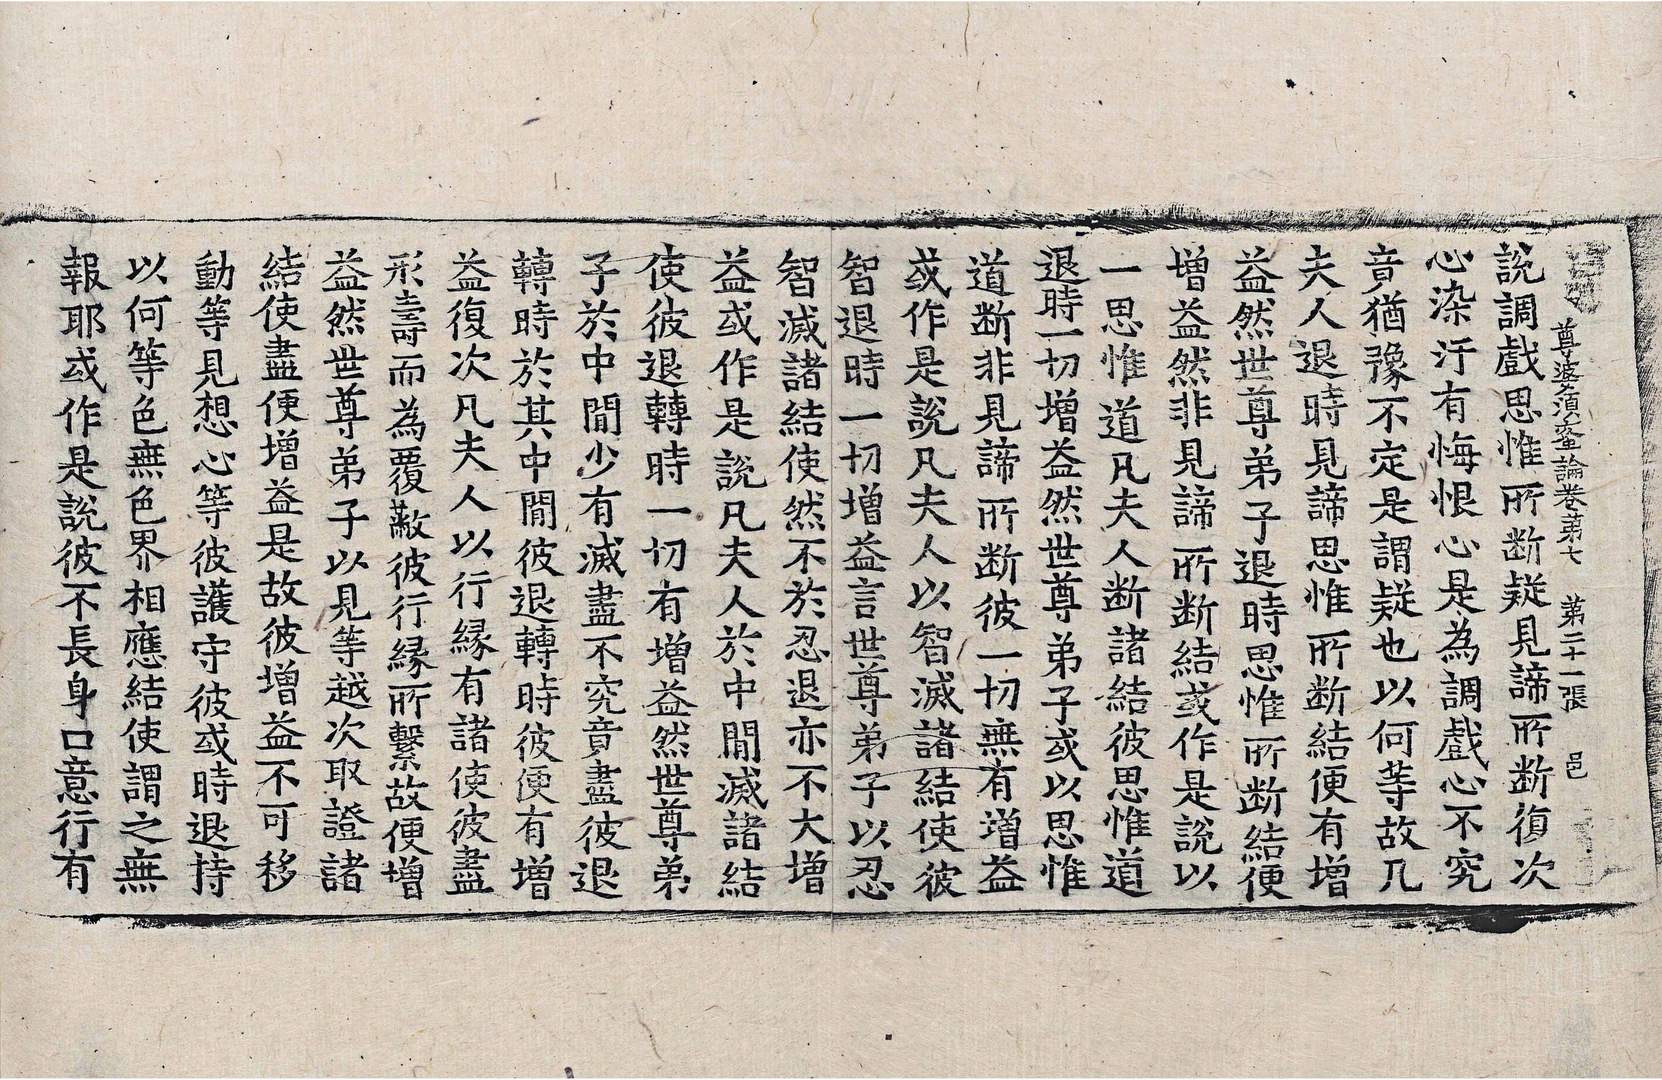 尊婆須蜜論卷第七　第二十一張　邑
說調戲思惟所断疑見諦所断復次
心染汙有悔恨心是為調戲心不究
竟猶豫不定是謂疑也以何等故凡
夫人退時見諦思惟所断結便有增
益然世尊弟子退時思惟所断結便
增益然非見諦所断結或作是說以
一思惟道凡夫人断諸結彼思惟道
退時一切增益然世尊弟子或以思惟
道断非見諦所断彼一切無有增益
或作是說凡夫人以智滅諸結使彼
智退時一切增益言世尊弟子以忍
智滅諸結使然不於忍退亦不大增
益或作是說凡夫人於中間滅諸結
使彼退轉時一切有增益然世尊弟
子於中間少有滅盡不究竟盡彼退
轉時於其中間彼退轉時彼便有增
益復次凡夫人以行緣有諸使彼盡
形壽而為覆蔽彼行緣所繫故便增
益然世尊弟子以見等越次取證諸
結使盡便增益是故彼增益不可移
動等見想心等彼護守彼或時退持
以何等色無色界相應結使謂之無
報耶或作是說彼不長身口意行有